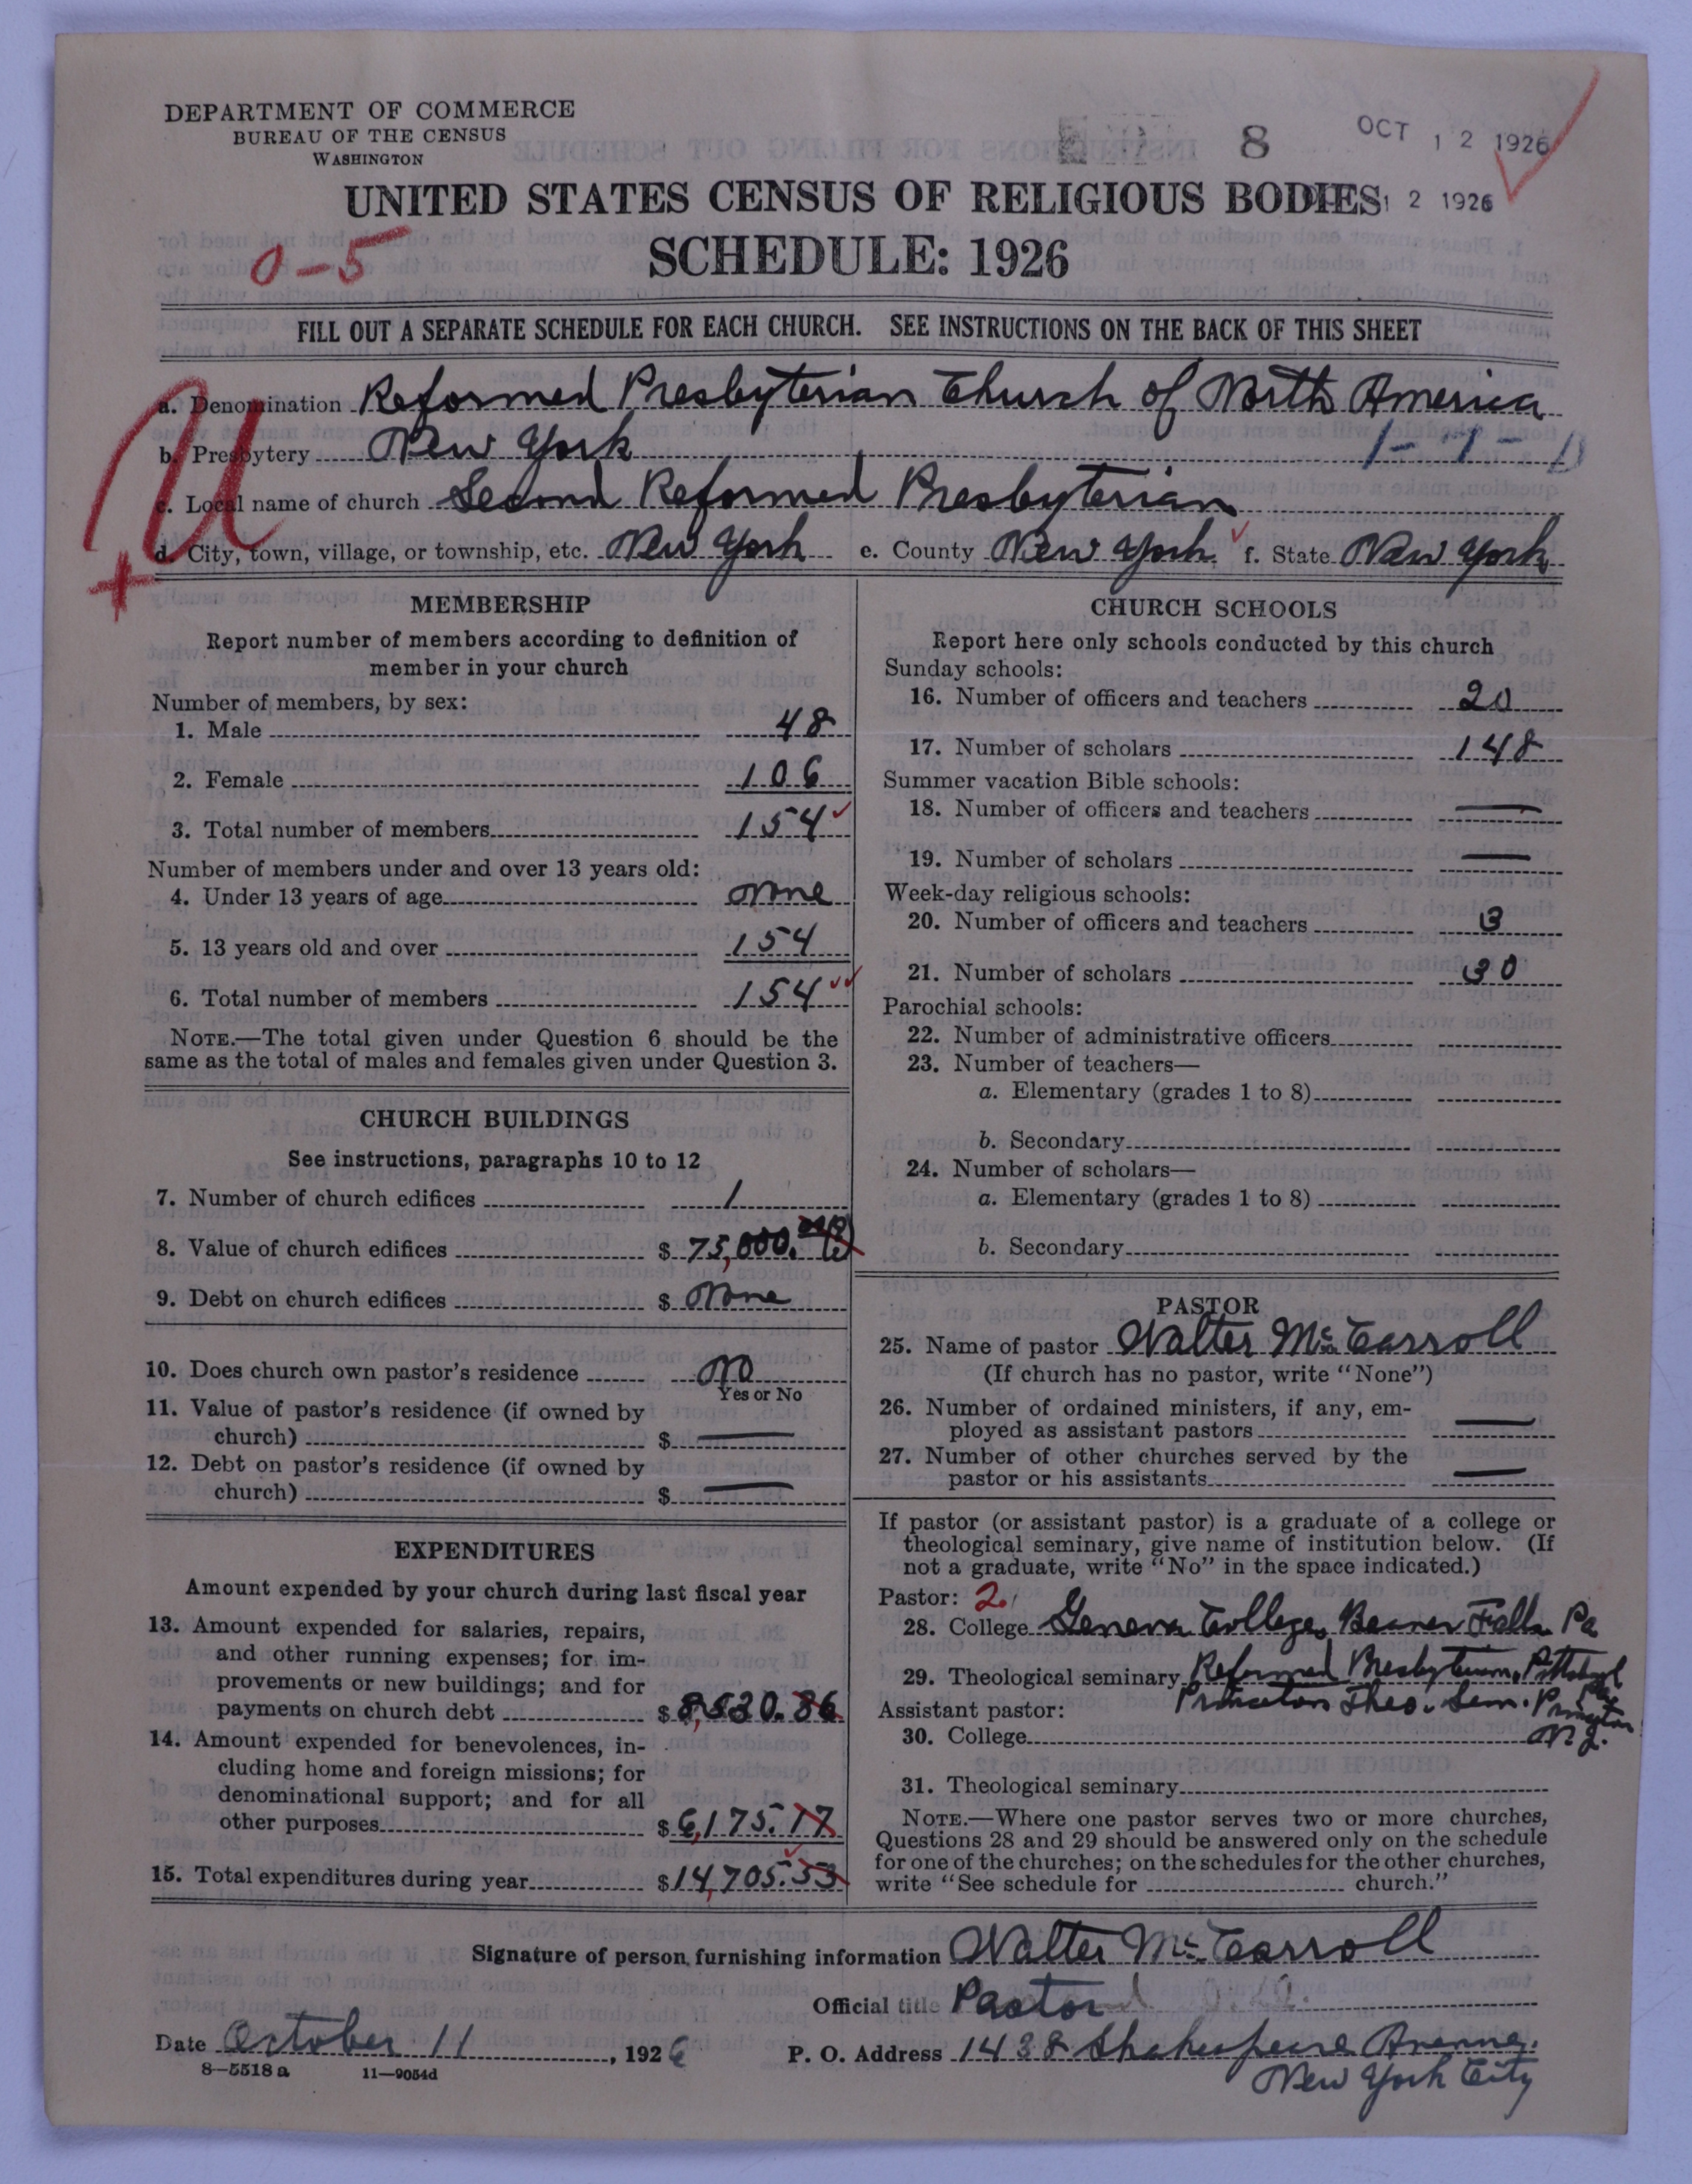 DEPARTMENT OF COMMERCE
BUREAU OF THE CENSUS
WASHINGTON
8
OCT 12 1926
UNITED STATES CENSUS OF RELIGIOUS BODIES
12 1926
SCHEDULE: 1926
0-5
FILL OUT A SEPARATE SCHEDULE FOR EACH CHURCH. SEE INSTRUCTIONS ON THE BACK OF THIS SHEET
U
+
a. Denomination Reformed Presbyterian Church of North America
b. Presbytery New York 1-7-
c. Local name of church Second Reformed Presbyterian
d. City, town, village, or township, etc. New York e. County New York f. State New York
MEMBERSHIP
Report number of members according to definition of
member in your church
Number of members, by sex:
1. Male 48
2. Female 106
3. Total number of members 154
Number of members under and over 13 years old:
4. Under 13 years of age None
5. 13 years old and over 154
6. Total number of members 154
NOTE.—The total given under Question 6 should be the
same as the total of males and females given under Question 3.
CHURCH BUILDINGS
See instructions, paragraphs 10 to 12
7. Number of church edifices 1
8. Value of church edifices $ 75,000.
9. Debt on church edifices $ None
10. Does church own pastor's residence No
Yes or No
11. Value of pastor's residence (if owned by
church) $ —
12. Debt on pastor's residence (if owned by
church) $ —
EXPENDITURES
Amount expended by your church during last fiscal year
13. Amount expended for salaries, repairs,
and other running expenses; for im-
provements or new buildings; and for
payments on church debt $ 8,530.36
14. Amount expended for benevolences, in-
cluding home and foreign missions; for
denominational support; and for all
other purposes $ 6,175.17
15. Total expenditures during year $ 14,705.53
CHURCH SCHOOLS
Report here only schools conducted by this church
Sunday schools:
16. Number of officers and teachers 20
17. Number of scholars 148
Summer vacation Bible schools:
18. Number of officers and teachers —
19. Number of scholars —
Week-day religious schools:
20. Number of officers and teachers 3
21. Number of scholars 30
Parochial schools:
22. Number of administrative officers
23. Number of teachers—
a. Elementary (grades 1 to 8)
b. Secondary
24. Number of scholars—
a. Elementary (grades 1 to 8)
b. Secondary
PASTOR
25. Name of pastor Walter McCarroll
(If church has no pastor, write "None")
26. Number of ordained ministers, if any, em-
ployed as assistant pastors —
27. Number of other churches served by the
pastor or his assistants —
If pastor (or assistant pastor) is a graduate of a college or
theological seminary, give name of institution below. (If
not a graduate, write "No" in the space indicated.)
Pastor: 2.
28. College Geneva College, Beaver Falls Pa
29. Theological seminary Reformed Presbyterian, Pittsburgh Pa
Princeton Theo. Sem. Princeton
N. J.
Assistant pastor:
30. College
31. Theological seminary
NOTE.—Where one pastor serves two or more churches,
Questions 28 and 29 should be answered only on the schedule
for one of the churches; on the schedules for the other churches,
write "See schedule for church."
Signature of person furnishing information Walter McCarroll
Official title Pastor
Date October 11, 1926 P. O. Address 1438 Shakespeare Avenue,
New York City
8—5518a 11—9054d